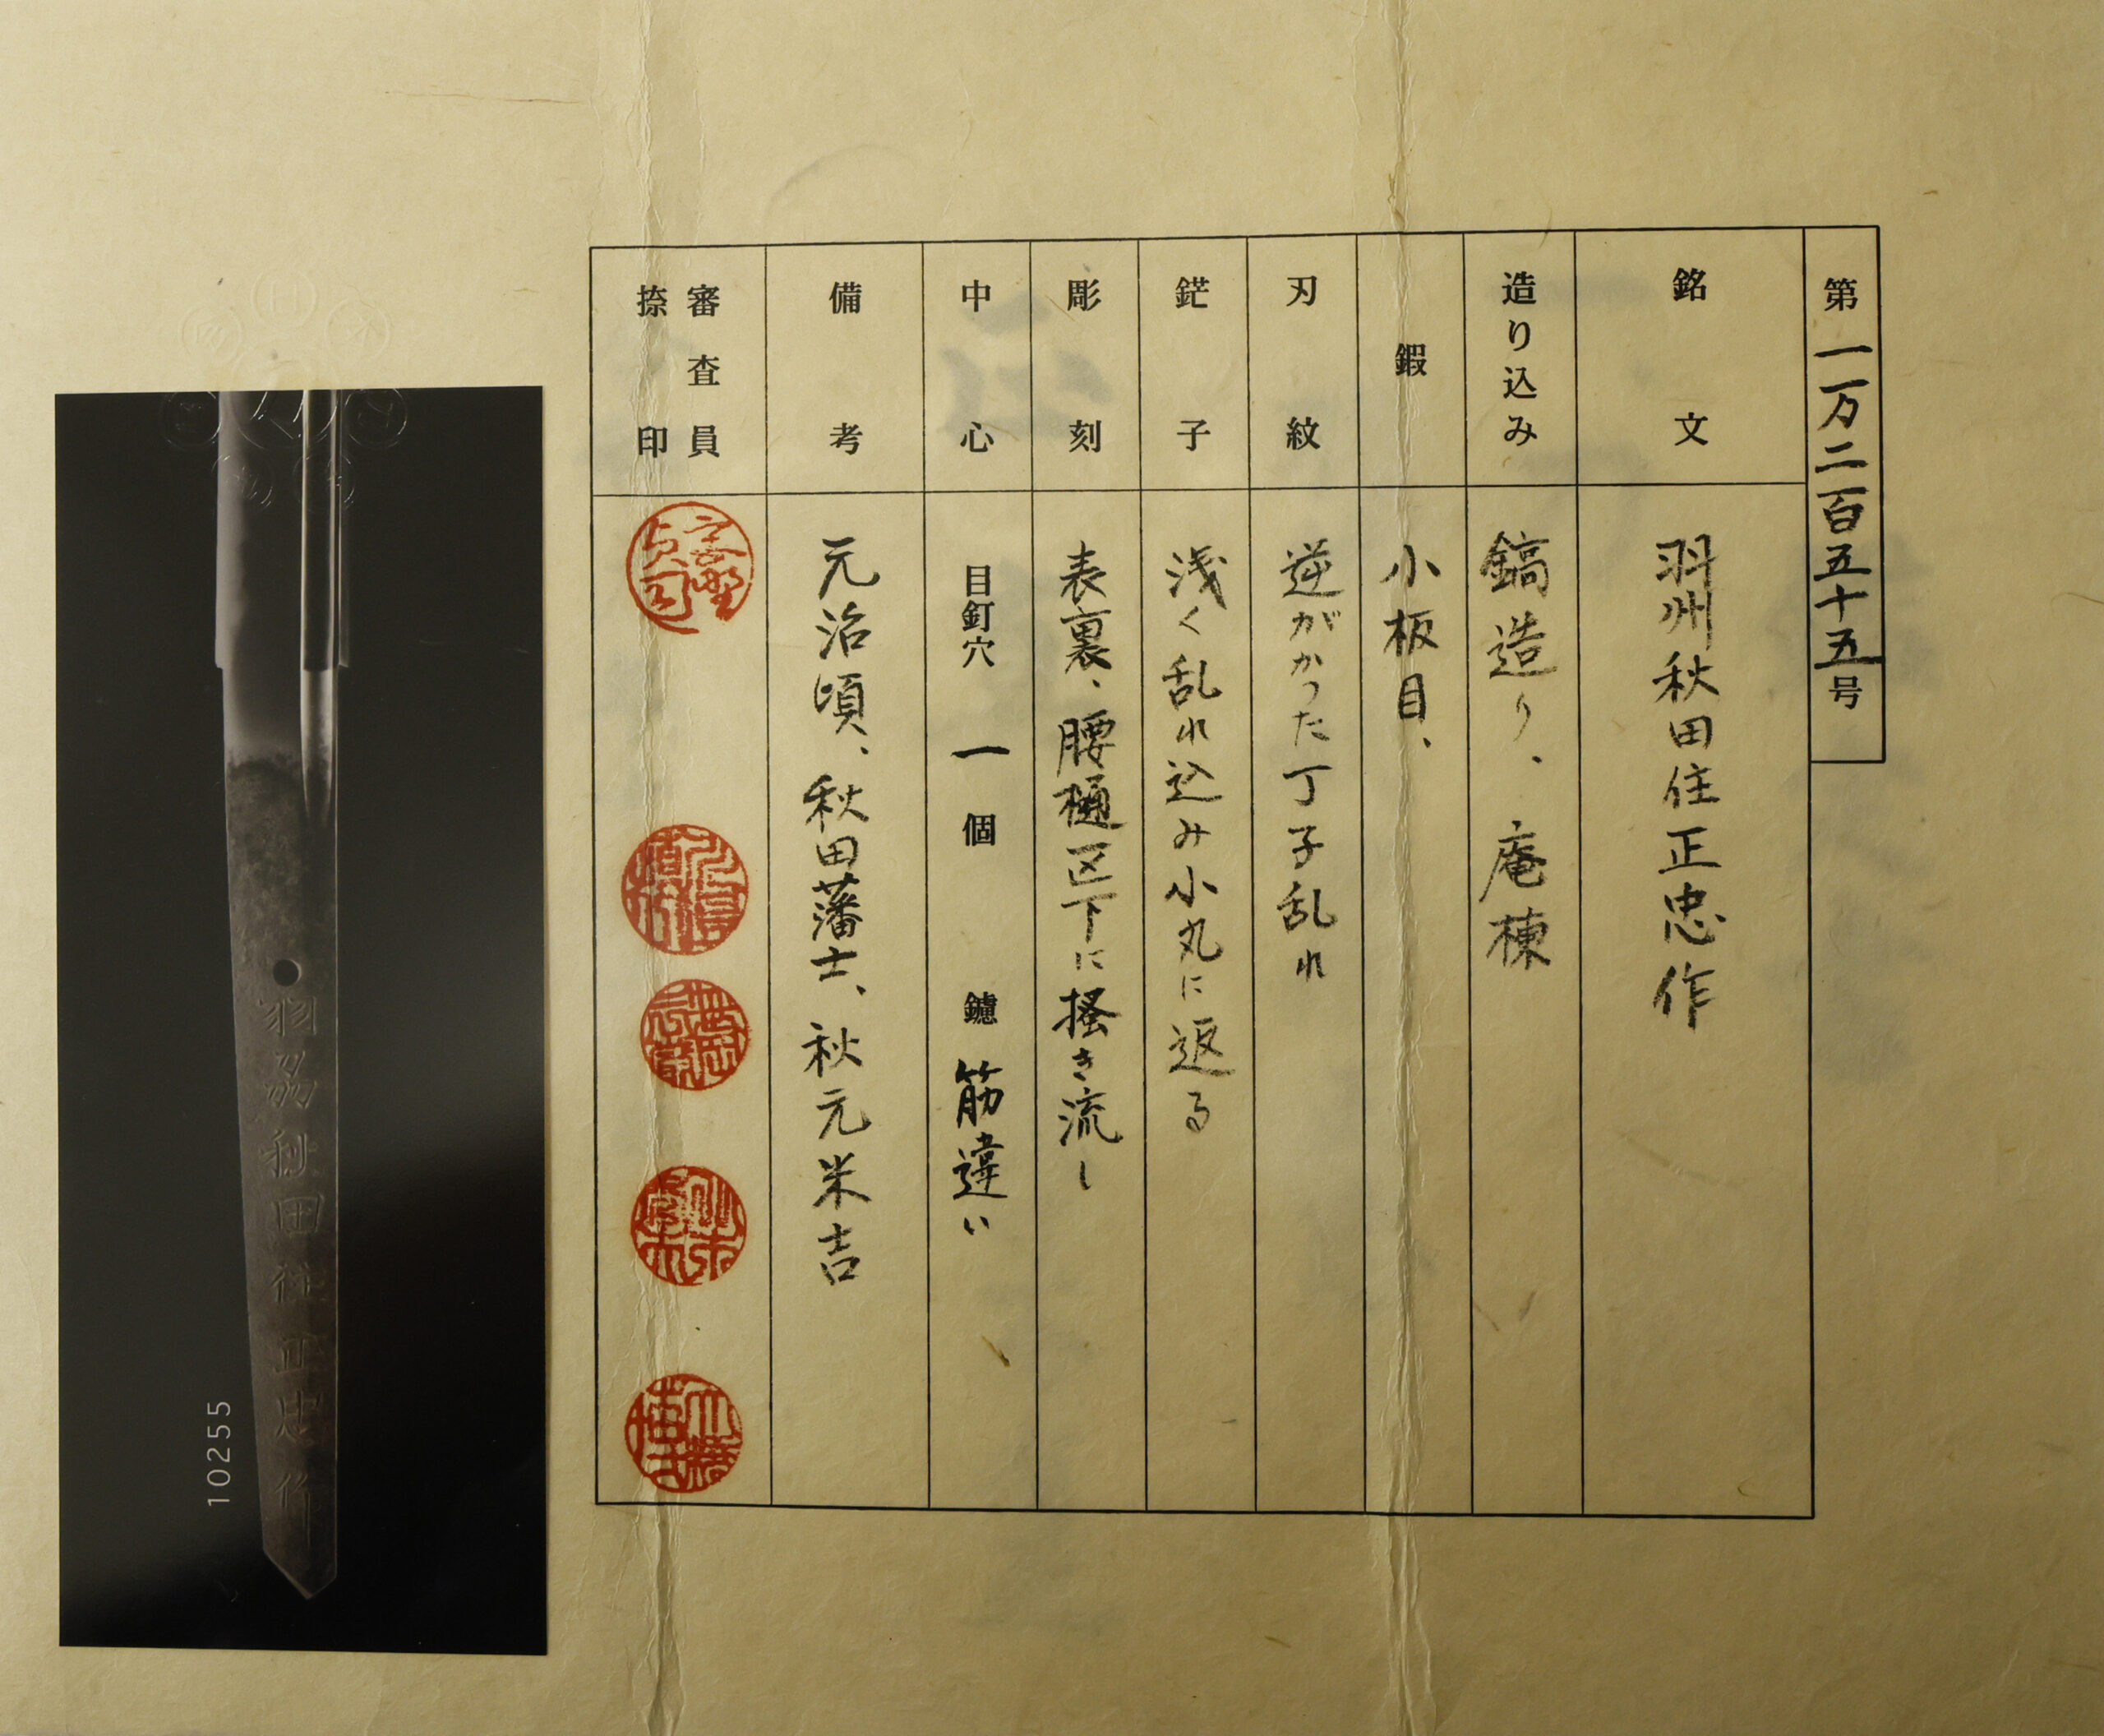 第一万二百五十五号
銘文
羽州秋田住正忠作
造り込み
鎬造り、庵棟
鍜
小板目、
刃紋
逆がかった丁子乱れ
鋩子
浅く乱れ込み小丸に返る
彫刻
表裏、腰樋区下に掻き流し
中心
目釘穴 一 個 鑢 筋違い
備考
元治頃、秋田藩士、秋元米吉
審査員
捺印
羽州秋田住正忠作
10255